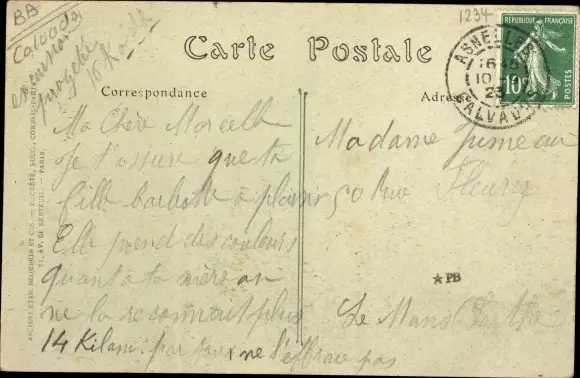 BB
Calvados
excursion
projetée
1234
Carte Postale
RÉPUBLIQUE FRANÇAISE
10c
POSTES
ASNELLES
16
10
23
CALVADOS
Correspondance
Adresse
Ma Chère Marcelle
Je t'assure que ta
fille barbotte à plaisir
Elle prend des couleurs
quant à ta mère on
ne la reconnait plus
14 Kilom. par jour ne l'effraie pas
Madame Jumeau
50 Rue Fleury
Le Mans Sarthe
★PB
ANCIENS ETAB. NEURDEIN ET CIE. — E. CRÉTÉ, SUCC. CORBEIL-PARIS
52, AV. DE BRETEUIL. — PARIS.